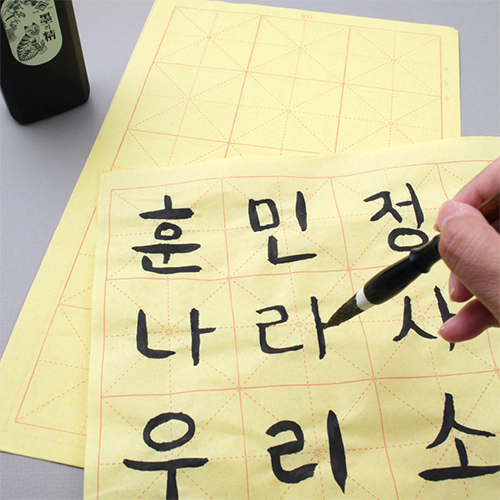 墨精
훈민정
나라사
우리소